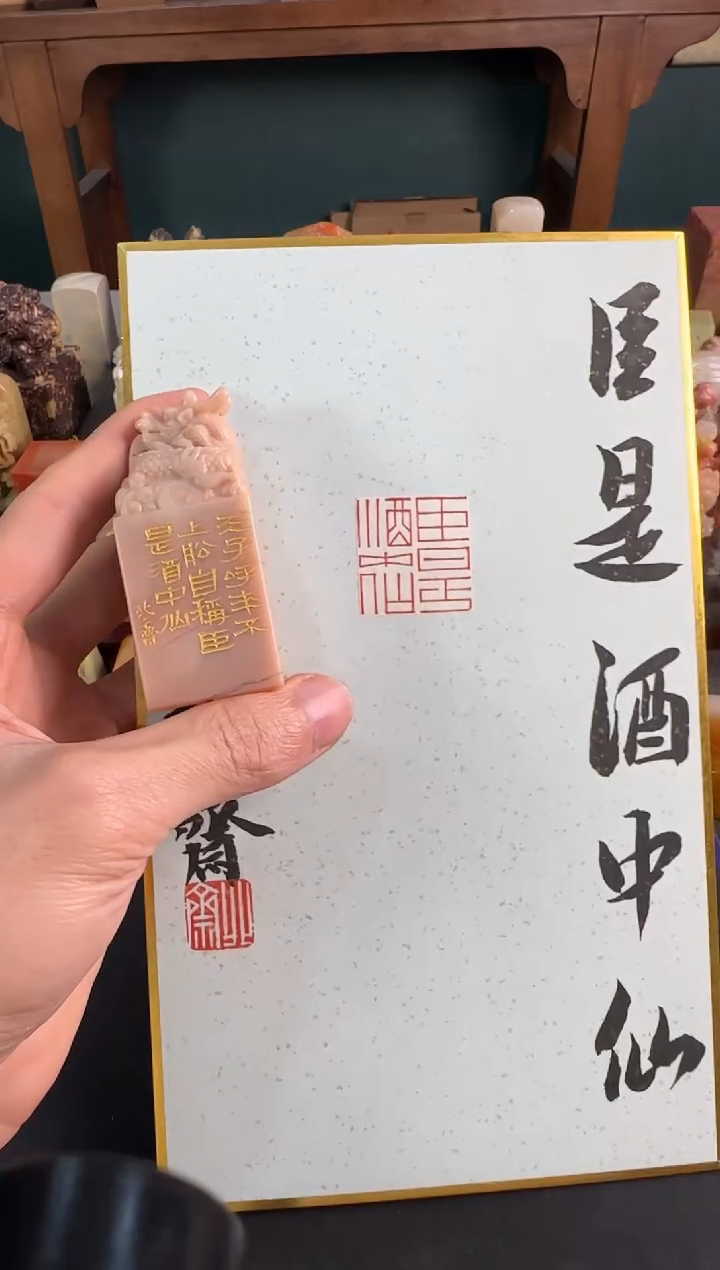 臣是酒中仙
臣是
酒中仙
天子呼来不
上舩自稱臣
是酒中仙
北齋
齋
北齋